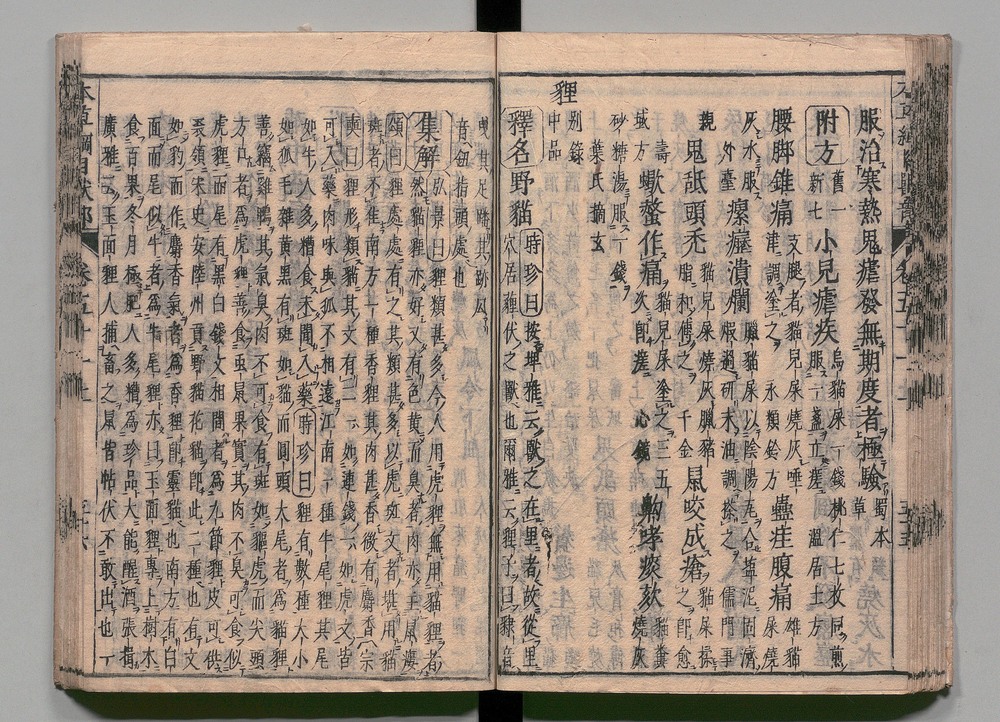 服治寒熱鬼瘧發無期度者極驗蜀本
草
附方舊一
新七小兒瘧疾烏猫屎一錢桃仁七枚同煎
服一盞立瘥溫居士方
腰脚錐痛支腿者猫兒屎燒灰唾
津調塗之永類鈐方蠱疰腹痛雄猫
屎燒
灰水服
外臺瘰癧潰爛臘猫屎以陰陽瓦合鹽泥固濟
煅過研末油調搽之儒門事
親鬼舐頭禿猫兒屎燒灰臘猪
脂和傅之千金鼠咬成瘡猫屎揉
之即愈
壽
域方蠍螫作痛猫兒屎塗之三五
次即瘥心鏡齁哮痰欬猫糞
燒灰
砂糖湯服一錢
葉氏摘玄
貍别錄
中品
釋名野猫時珍曰按埤雅云獸之在里者故從里
穴居薶伏之獸也爾雅云貍子曰㹮音
曳其足蹯其跡凡
音鈕指頭處也
集解弘景曰貍類甚多今人用虎貍無用猫貍者
然猫貍亦好又有色黄而臭者肉亦主鼠瘻
頌曰貍處處有之其類甚多以虎斑文者堪用猫
斑者不佳南方一種香貍其肉甚香微有麝香宗
奭曰貍形類猫其文有二一如連錢一如虎文皆
可入藥肉味與狐不相遠江南一種牛尾貍其尾
如牛人多糟食未聞入藥時珍曰貍有數種大小
如狐毛雜黄黑有斑如猫而圓頭大尾者爲猫貍
善竊雞鴨其氣臭肉不可食有斑如貙虎而尖頭
方口者爲虎貍善食蟲鼠果實其肉不臭可食似
虎貍而尾有黑白錢文相間者爲九節貍皮可供
裘領宋史安陸州貢野猫花猫即此二種也有文
如豹而作麝香氣者爲香貍即靈猫也南方有白
面而尾似牛者爲牛尾貍亦曰玉面貍專上樹木
食百果冬月極肥人多糟爲珍品大能醒酒張揖
廣雅云玉面貍人捕畜之鼠皆帖伏不敢出也一
本草綱目獸部 卷五十一